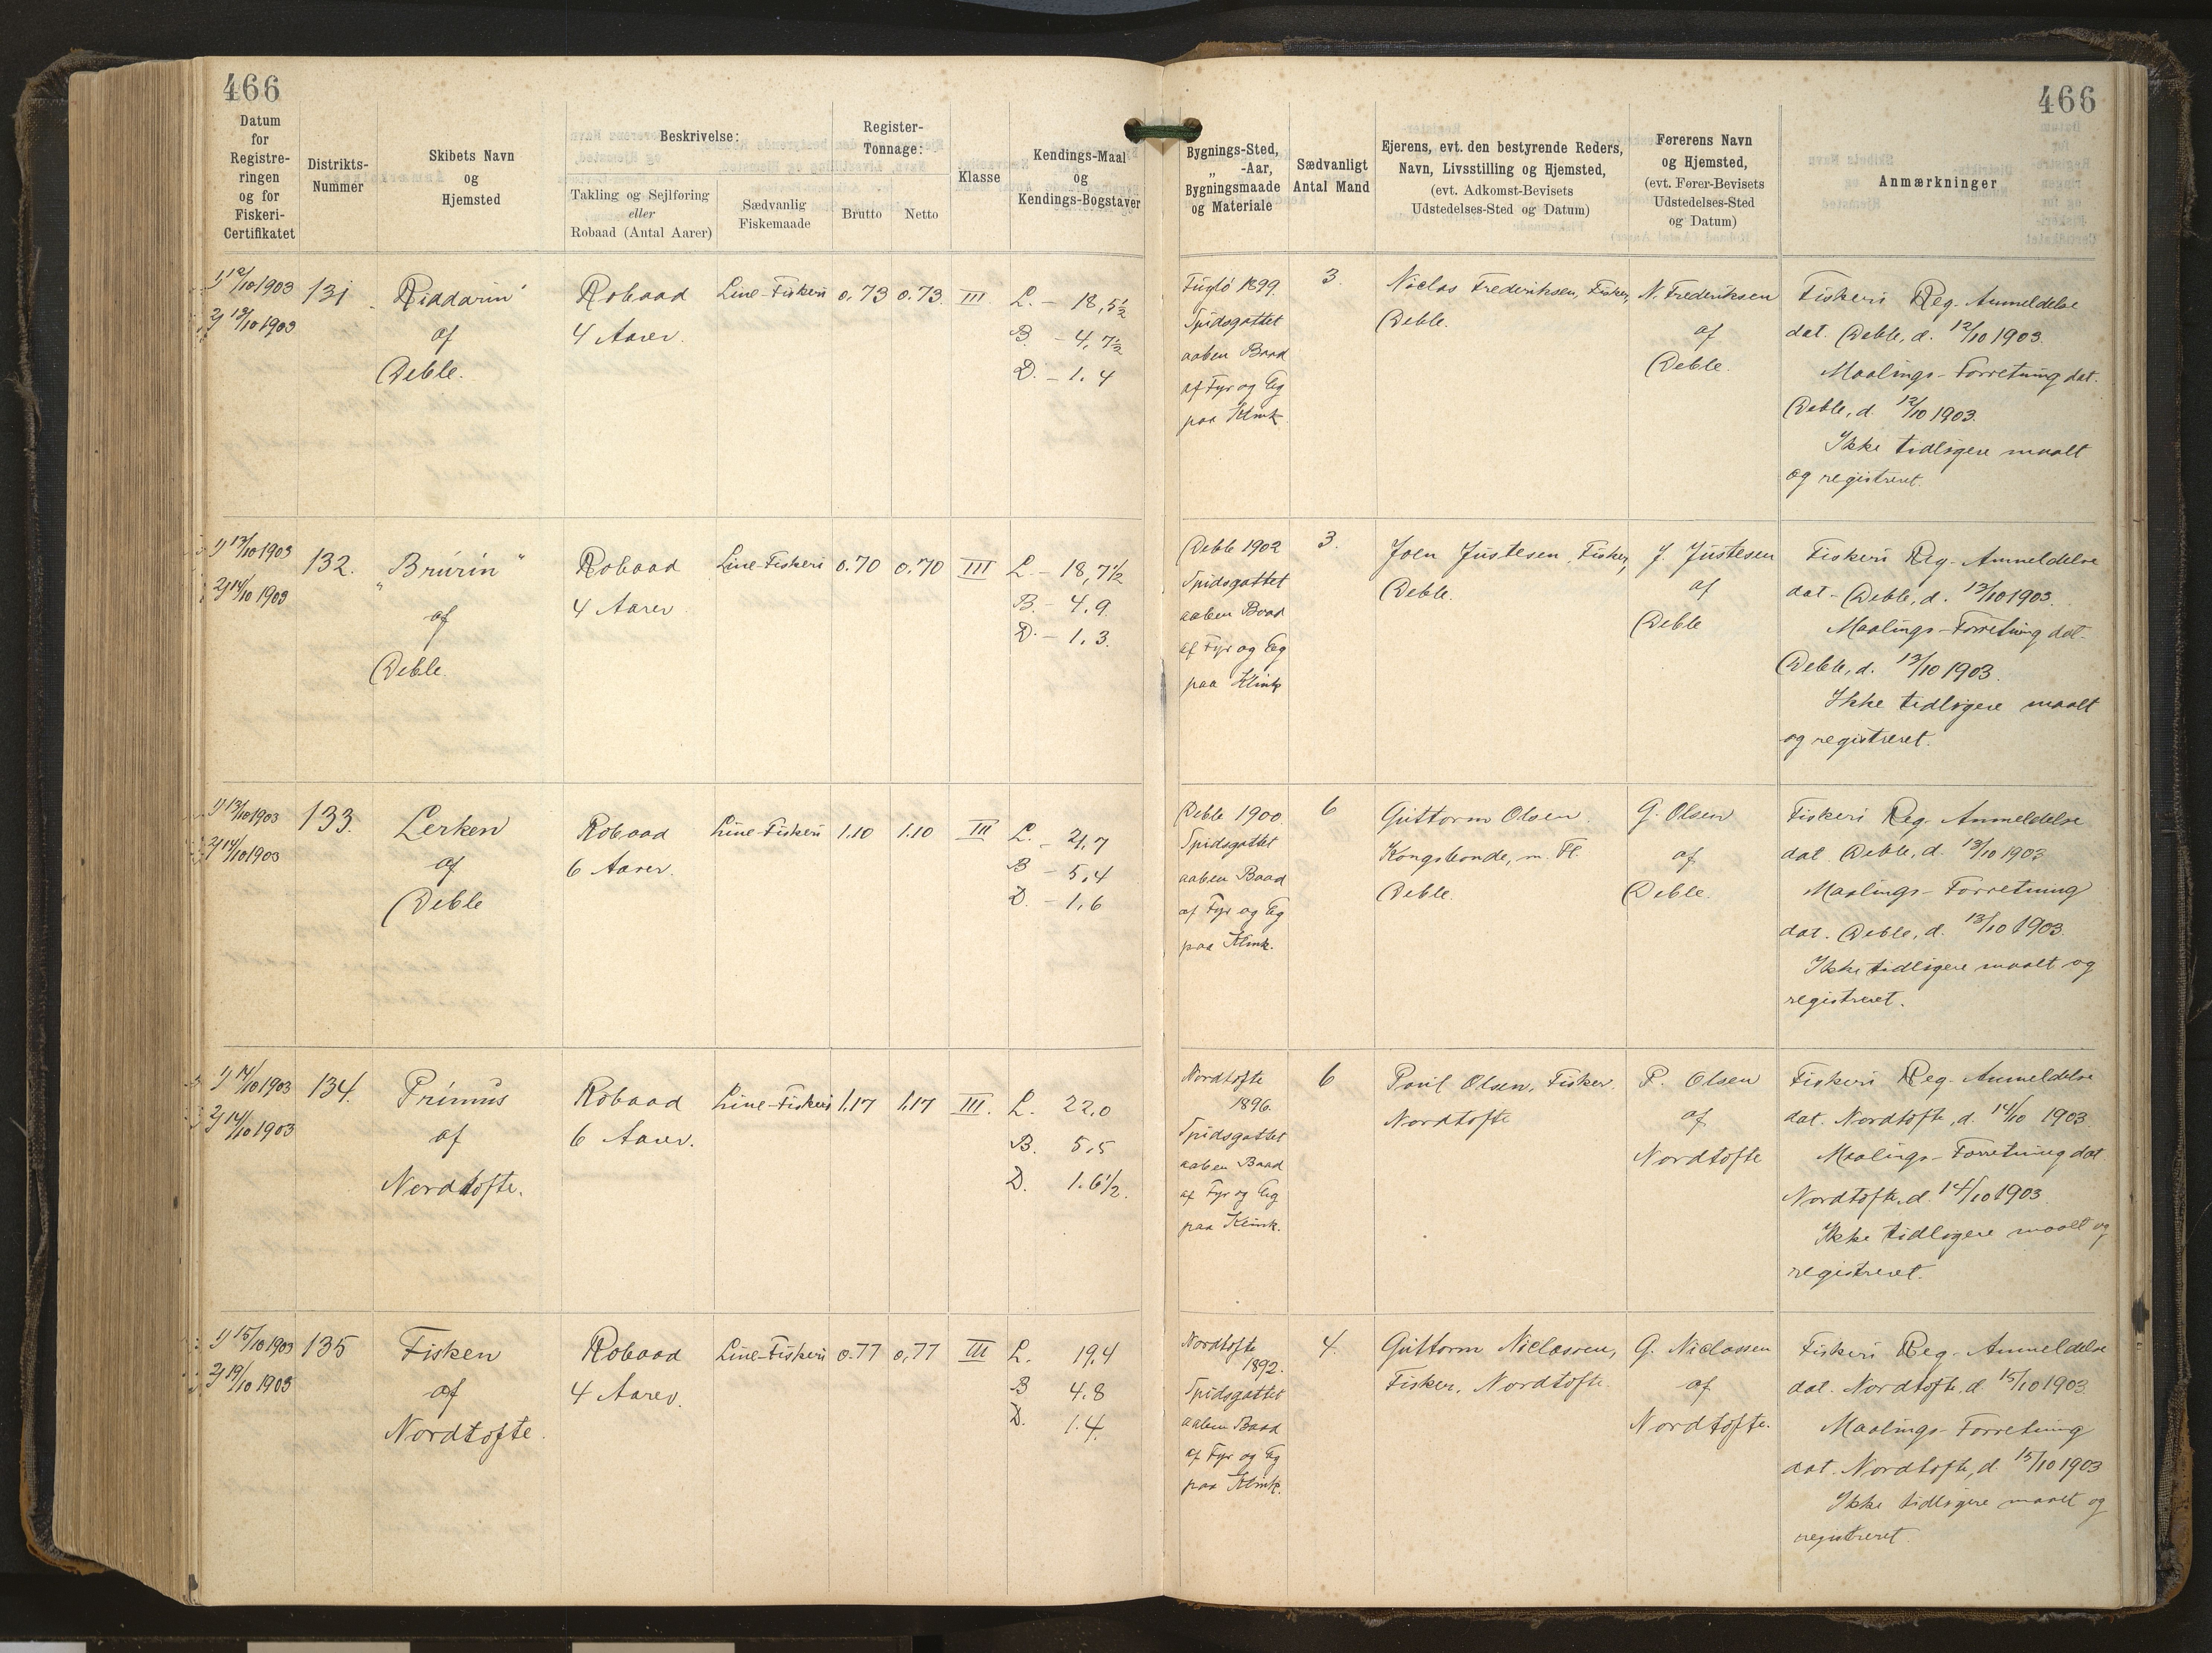 466
466
Datum
for
Registre-
ringen
og for
Fiskeri-
Certifikatet
Distrikts-
Nummer
Skibets Navn
og
Hjemsted
Beskrivelse:
Takling og Sejlføring
eller
Robaad (Antal Aarer)
Sædvanlig
Fiskemaade
Register-
Tonnage:
Brutto
Netto
Klasse
Kendings-Maal
og
Kendings-Bogstaver
Bygnings-Sted,
„ -Aar,
Bygningsmaade
og Materiale
Sædvanligt
Antal Mand
Ejerens, evt. den bestyrende Reders,
Navn, Livsstilling og Hjemsted,
(evt. Adkomst-Bevisets
Udstedelses-Sted og Datum)
Førerens Navn
og Hjemsted,
(evt. Fører-Bevisets
Udstedelses-Sted
og Datum)
Anmærkninger
1) 12/10 1903
2) 13/10 1903
131
Riddarin
af
Deble.
Robaad
4 Aarer.
Line-Fiskeri
0.73
0.73
III.
L. – 18,5½
B. – 4,7½
D. – 1.4
Fuglö 1899.
Spidsgattet
aaben Baad
af Fyr og Eg
paa Klink
3.
Niclas Frederiksen, Fisker,
Deble.
N. Frederiksen
af
Deble.
Fiskeri Reg. Anmeldelse
dat. Deble, d. 12/10 1903.
Maalings-Forretning dat.
Deble, d. 12/10 1903.
Ikke tidligere maalt
og registreret.
1) 13/10 1903
2) 14/10 1903
132.
„Brúrin“
af
Deble.
Robaad
4 Aarer
Line-Fiskeri
0.70
0.70
III
L. – 18,7½
B. – 4.9
D. – 1.3.
Deble 1902
Spidsgattet
aaben Baad
af Fyr og Eg
paa Klink
3.
Joen Justesen, Fisker,
Deble.
J. Justesen
af
Deble
Fiskeri Reg. Anmeldelse
dat. Deble, d. 13/10 1903.
Maalings-Forretning dat.
Deble, d. 13/10 1903.
Ikke tidligere maalt
og registreret.
1) 13/10 1903
2) 14/10 1903
133.
Lerken
af
Deble
Robaad
6 Aarer.
Line-Fiskeri
1.10
1.10
III
L. – 21,7
B – 5,4
D. – 1,6
Deble 1900.
Spidsgattet
aaben Baad
af Fyr og Eg
paa Klink.
6
Guttorm Olsen.
Kongsbonde, m. Fl.
Deble.
G. Olsen
af
Deble.
Fiskeri Reg. Anmeldelse
dat. Deble, d. 13/10 1903
Maalings-Forretning
dat. Deble, d. 13/10 1903.
Ikke tidligere maalt og
registreret.
1) 14/10 1903
2) 14/10 1903
134.
Primus
af
Nordtofte.
Robaad
6 Aarer.
Line-Fiskeri
1,17
1,17
III.
L. 22,0
B. 5,5
D. 1.6½.
Nordtofte
1896.
Spidsgattet
aaben Baad
af Fyr og Eg
paa Klink.
6
Poul Olsen, Fisker.
Nordtofte
P. Olsen
af
Nordtofte
Fiskeri Reg. Anmeldelse
dat. Nordtofte, d. 14/10 1903.
Maalings-Forretning dat
Nordtofte, d. 14/10 1903.
Ikke tidligere maalt og
registreret.
1) 15/10 1903
2) 19/10 1903
135
Fisken
af
Nordtofte.
Robaad
4 Aarer.
Line-Fiskeri
0.77
0,77
III
L. 19,4
B 4.8
D. 1.4.
Nordtofte
1892.
Spidsgattet
aaben Baad
af Fyr og Eg
paa Klink.
4.
Guttorm Niclassen,
Fisker, Nordtofte.
G. Niclassen
af
Nordtofte.
Fiskeri Reg. Anmeldelse
dat. Nordtofte, d. 15/10 1903.
Maalings-Forretning
dat. Nordtofte, d. 15/10 1903
Ikke tidligere maalt og
registreret.